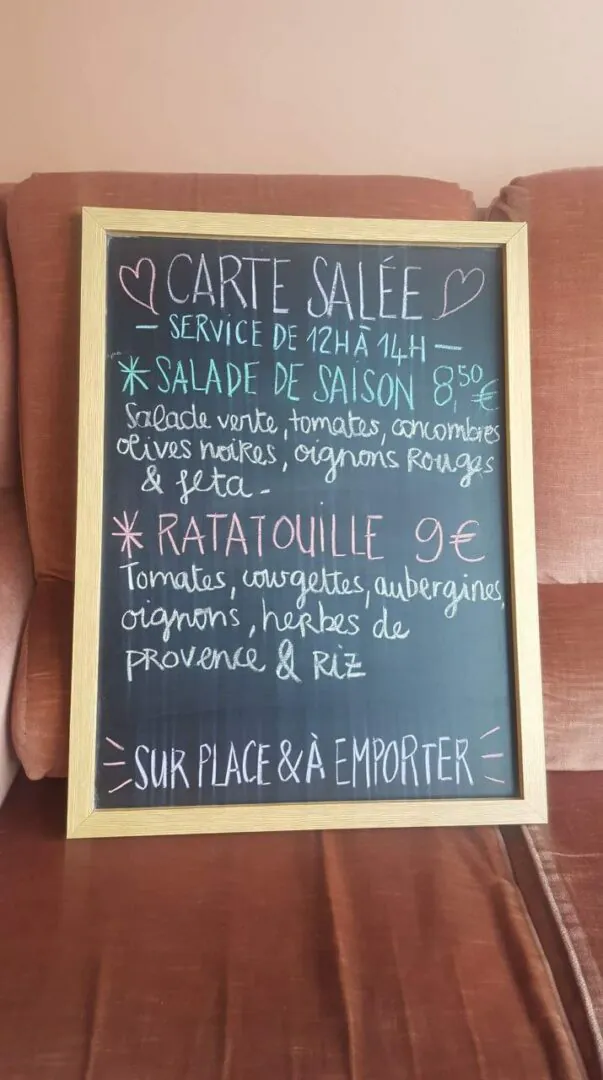 CARTE SALÉE
- SERVICE DE 12H À 14H -
* SALADE DE SAISON 8,50€
Salade verte, tomates, concombres
olives noires, oignons Rouges
& feta -
* RATATOUILLE 9€
Tomates, courgettes, aubergines,
oignons, herbes de
PROVENCE & RIZ
SUR PLACE & À EMPORTER